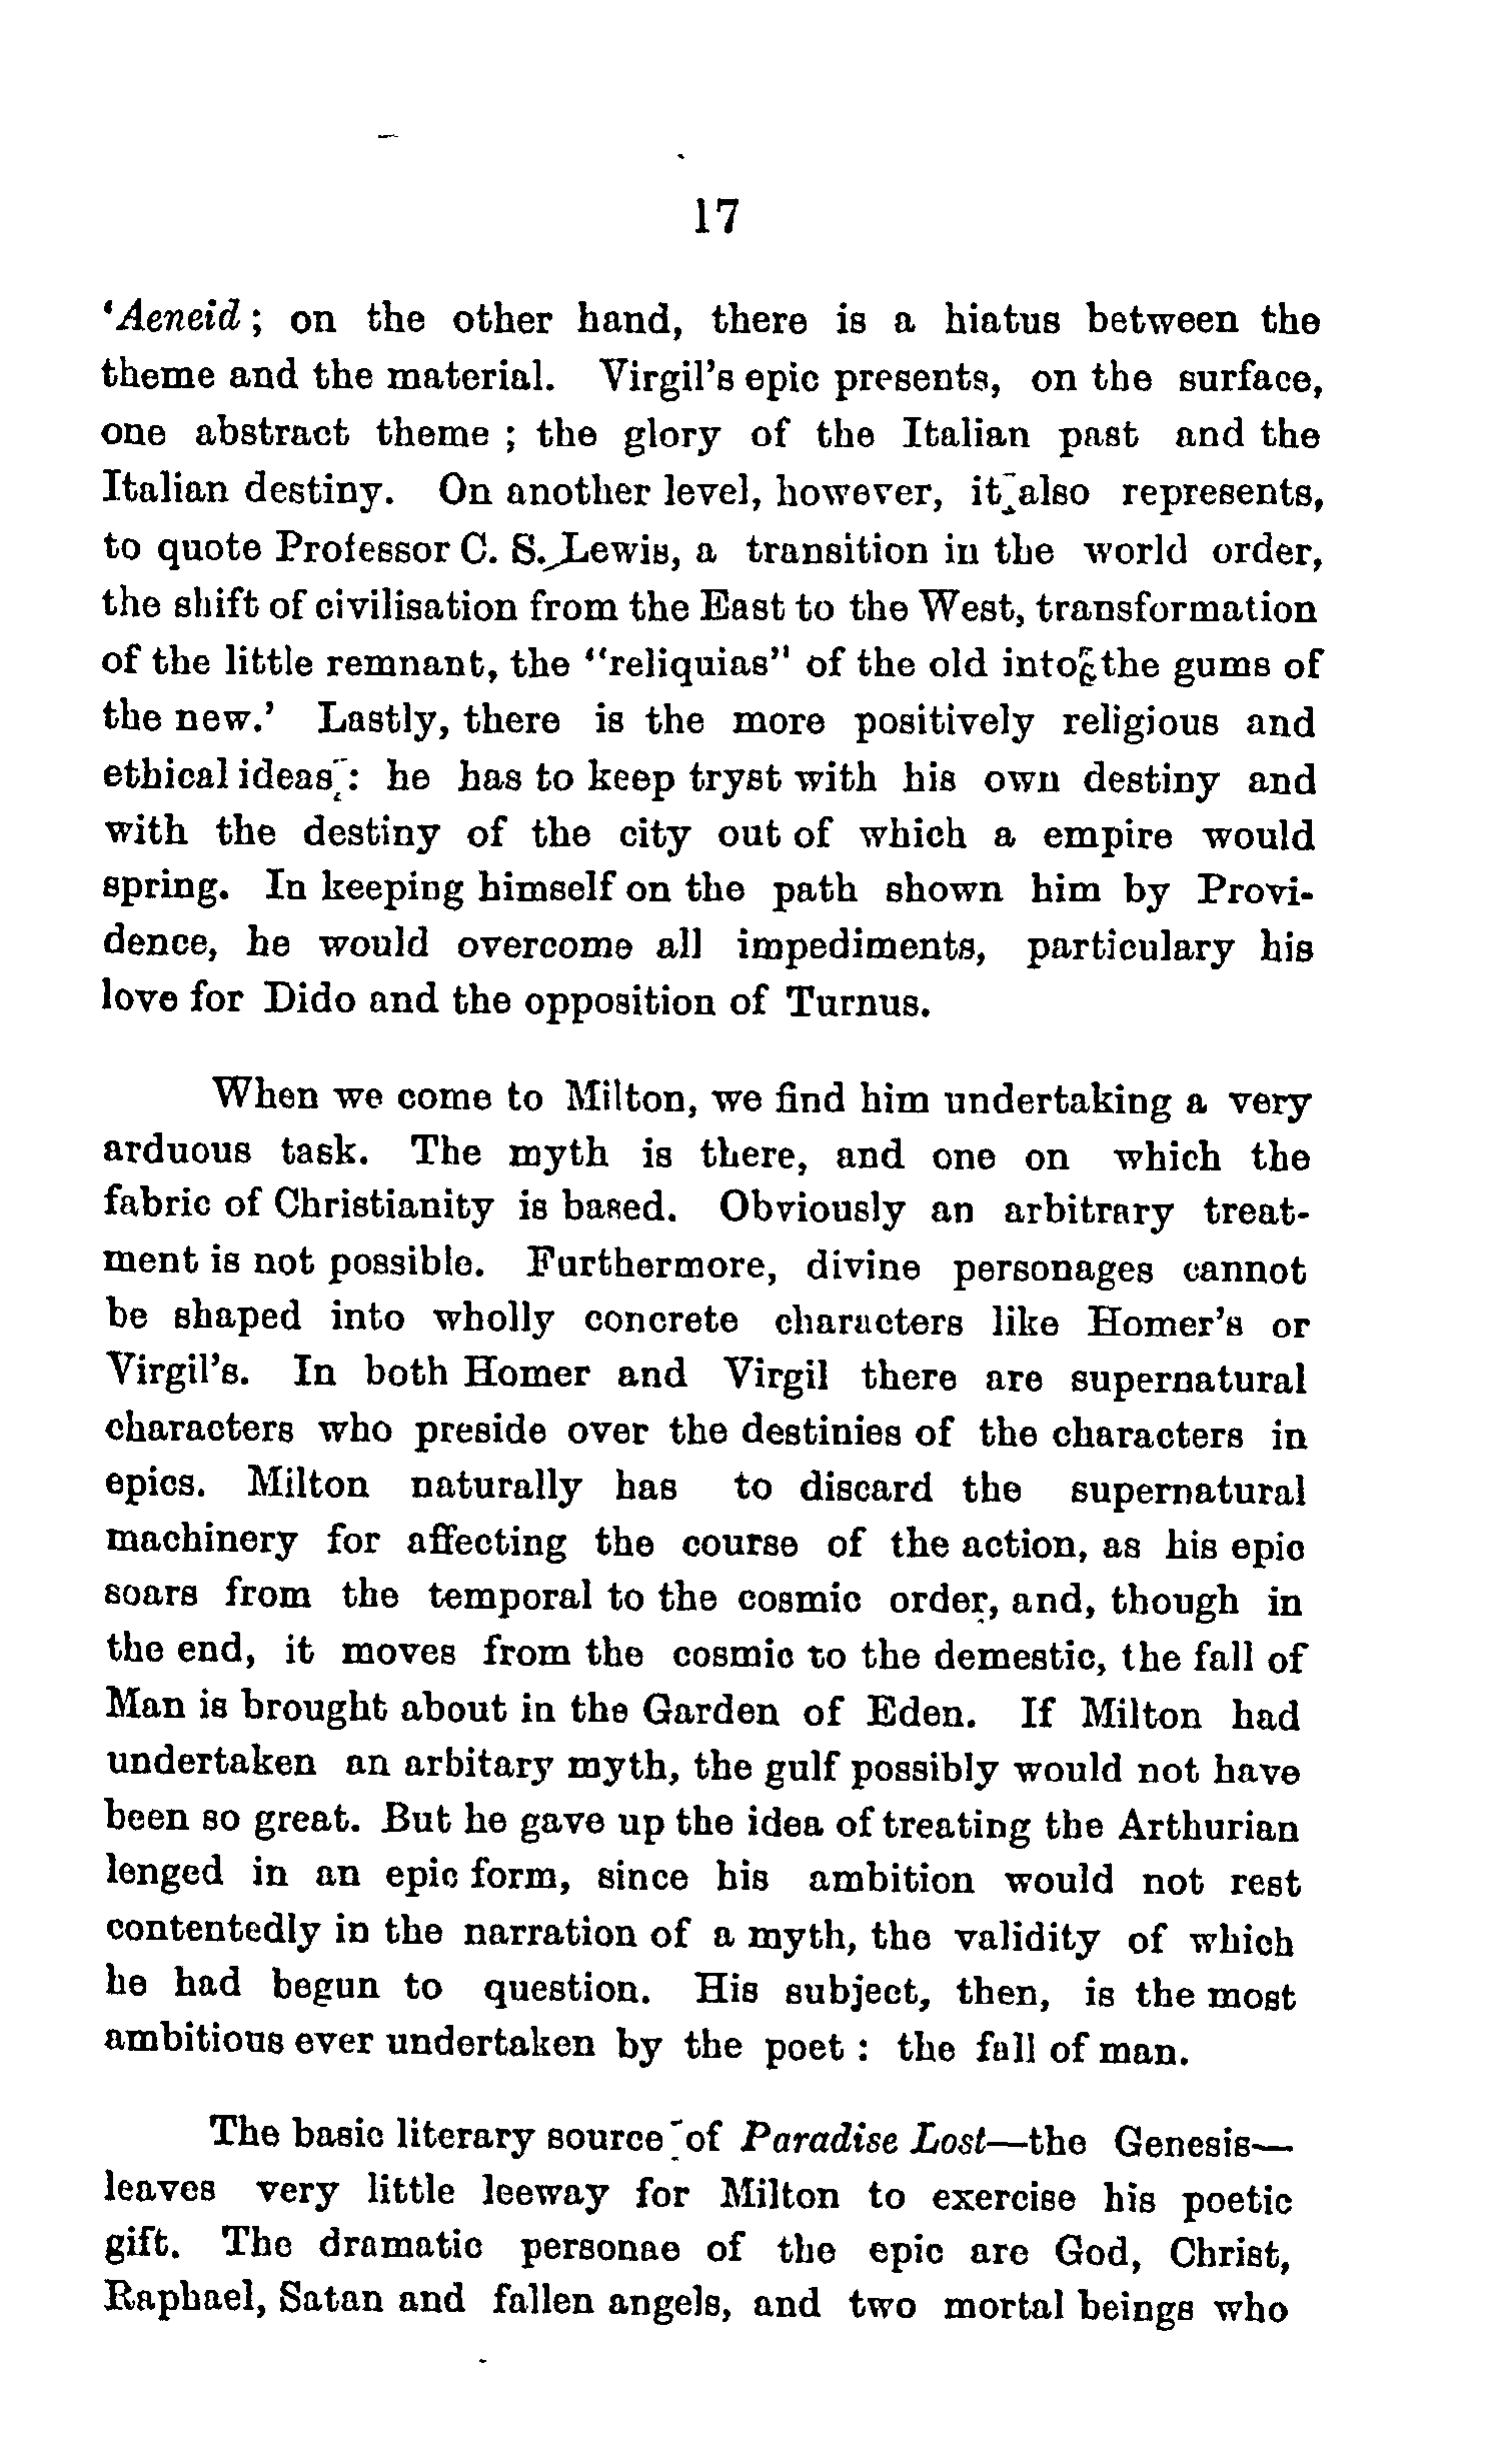 17
‘Aeneid ; on the other hand, there is a hiatus between the
theme and the material. Virgil’s epic presents, on the surface,
one abstract theme ; the glory of the Italian past and the
Italian destiny. On another level, however, it also represents,
to quote Professor C. S. Lewis, a transition in the world order,
the shift of civilisation from the East to the West, transformation
of the little remnant, the “reliquias” of the old into the gums of
the new.’ Lastly, there is the more positively religious and
ethical ideas : he has to keep tryst with his own destiny and
with the destiny of the city out of which a empire would
spring. In keeping himself on the path shown him by Provi-
dence, he would overcome all impediments, particulary his
love for Dido and the opposition of Turnus.
When we come to Milton, we find him undertaking a very
arduous task. The myth is there, and one on which the
fabric of Christianity is based. Obviously an arbitrary treat-
ment is not possible. Furthermore, divine personages cannot
be shaped into wholly concrete characters like Homer’s or
Virgil’s. In both Homer and Virgil there are supernatural
characters who preside over the destinies of the characters in
epics. Milton naturally has to discard the supernatural
machinery for affecting the course of the action, as his epic
soars from the temporal to the cosmic order, and, though in
the end, it moves from the cosmic to the demestic, the fall of
Man is brought about in the Garden of Eden. If Milton had
undertaken an arbitary myth, the gulf possibly would not have
been so great. But he gave up the idea of treating the Arthurian
lenged in an epic form, since his ambition would not rest
contentedly in the narration of a myth, the validity of which
he had begun to question. His subject, then, is the most
ambitious ever undertaken by the poet : the fall of man.
The basic literary source of Paradise Lost—the Genesis—
leaves very little leeway for Milton to exercise his poetic
gift. The dramatic personae of the epic are God, Christ,
Raphael, Satan and fallen angels, and two mortal beings who